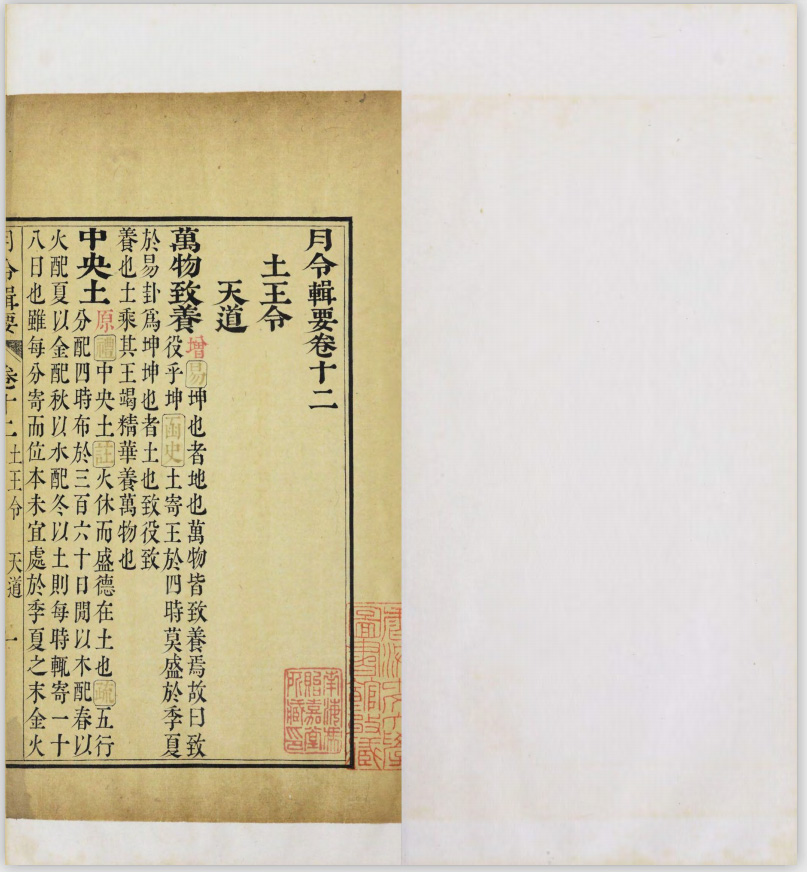 月令輯要卷十二
土王令
天道
萬物致養增易坤也者地也萬物皆致養焉故曰致
役乎坤函史土寄王於四時莫盛於季夏
於易卦爲坤坤也者土也致役致
養也土乘其王竭精華養萬物也
中央土原禮中央土註火休而盛德在土也疏五行
分配四時布於三百六十日閒以木配春以
火配夏以金配秋以水配冬以土則每時輒寄一十
八日也雖每分寄而位本未宜處於季夏之末金火
月令輯要 卷十二 土王令 天道 一
南海馮
貽嘉堂
所藏